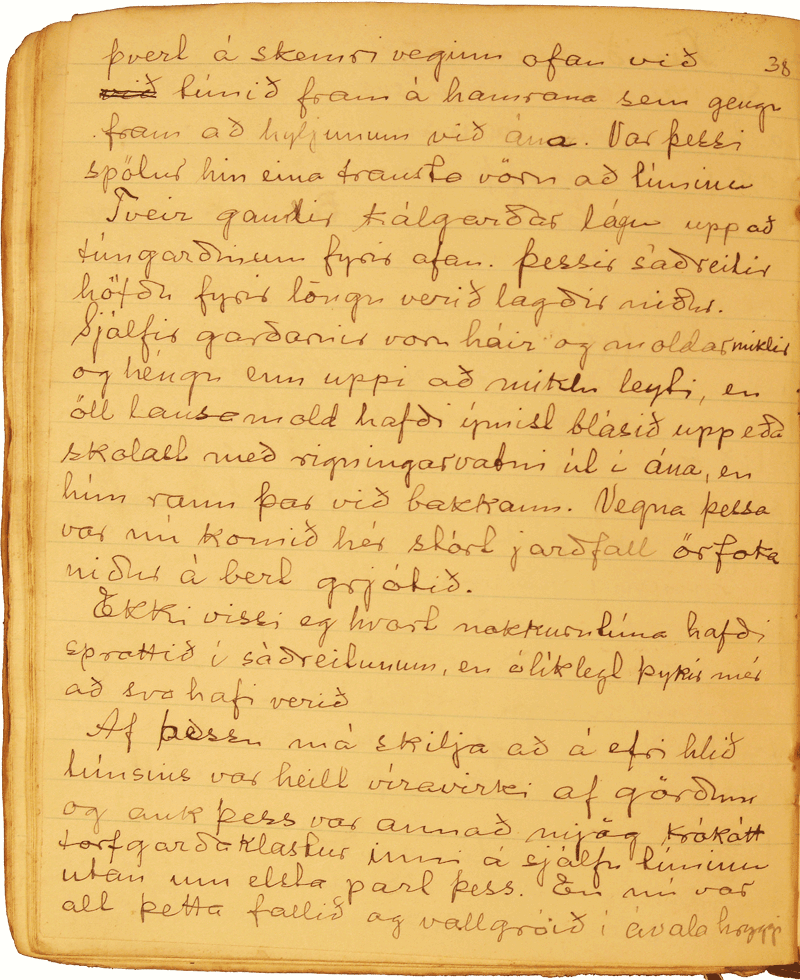 þvert á skemri veginn ofan við
38
við túnið fram á hamrana sem gengu
fram að hyljunum við ána. Var þessi
spölur hin eina trausta vörn að túninu
Tveir gamlir kálgarðar lágu upp að
túngarðinum fyrir ofan. Þessir sáðreitir
höfðu fyrir löngu verið lagðir niður.
Sjálfir garðarnir voru háir og moldarmiklir
og héngu enn uppi að miklu leyti, en
öll lausamold hafði ýmist blásið upp eða
skolast með rigningarvatni út í ána, en
hún rann þar við bakkann. Vegna þessa
var nú komið hér stórt jarðfall örfoka
niður á bert grjótið.
Ekki vissi eg hvort nokkurntíma hafði
sprottið í sáðreitunum, en ólíklegt þykir mér
að svo hafi verið
Af þessu má skilja að á efri hlið
túnsins var heilt víravirki af görðum
og auk þess var annað mjög krókótt
torfgarðaklastur inni á sjálfu túninu
utan um elsta part þess. En nú var
allt þetta fallið og vallgróið í ávala hryggi